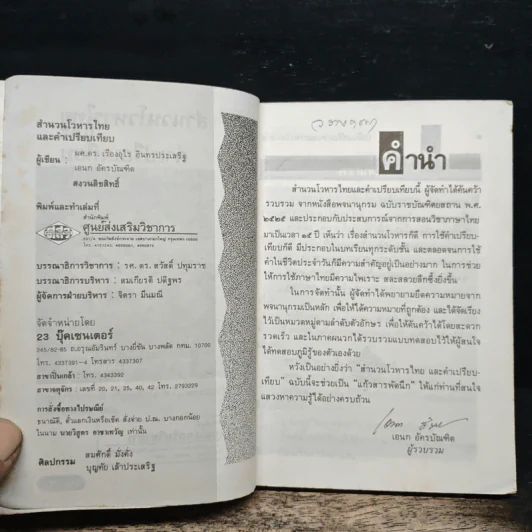 สำนวนโวหารไทย
และคำเปรียบเทียบ
ผู้เขียน: ผศ.ดร. เรืองอุไร อินทรประเสริฐ
เอนก อัครบัณฑิต
สงวนลิขสิทธิ์
พิมพ์และทำเล่มที่
สำนักพิมพ์
ศูนย์ส่งเสริมวิชาการ
บรรณาธิการวิชาการ : รศ. ดร. สวัสดิ์ ปทุมราช
บรรณาธิการบริหาร : สมเกียรติ ปติฐพร
ผู้จัดการฝ่ายบริหาร : จิตรา มีนมณี
จัดจำหน่ายโดย
23 บุ๊คเซนเตอร์
245/82-85 ถ.อรุณอัมรินทร์ บางยี่ขัน บางพลัด กทม. 10700
โทร. 4337391-4 โทรสาร 4337307
สาขาปิ่นเกล้า : 4343392
สาขาจตุจักร : เลขที่ 20, 21, 25, 40, 42 โทร. 2793229
การสั่งซื้อทางไปรษณีย์
ธนาณัติ, ตั๋วแลกเงินหรือเช็ค สั่งจ่าย ป.ณ. บางกอกน้อย
ในนาม นายวิสูตร อาชาเทวัญ เท่านั้น
ศิลปกรรม สมศักดิ์ มั่งคั่ง
บุญทัย เล้าประเสริฐ
คำนำ
สำนวนโวหารไทยและคำเปรียบเทียบนี้ ผู้จัดทำได้ค้นคว้า
รวบรวม จากหนังสือพจนานุกรม ฉบับราชบัณฑิตยสถาน พ.ศ.
๒๕๒๕ และประกอบกับประสบการณ์จากการสอนวิชาภาษาไทย
มาเป็นเวลา ๑๕ ปี เห็นว่า เรื่องสำนวนโวหารก็ดี การใช้คำเปรียบ-
เทียบก็ดี มีประกอบในบทเรียนทุกระดับชั้น และตลอดจนการใช้
คำในชีวิตประจำวันก็มีความสำคัญอยู่เป็นอย่างมาก ในการช่วย
ให้การใช้ภาษาไทยมีความไพเราะ สละสลวยลึกซึ้งยิ่งขึ้น
ในการจัดทำนั้น ผู้จัดทำได้พยายามยึดความหมายจาก
พจนานุกรมเป็นหลัก เพื่อให้ได้ความหมายที่ถูกต้อง และได้จัดเรียง
ไว้เป็นหมวดหมู่ตามลำดับตัวอักษร เพื่อให้ค้นคว้าได้โดยสะดวก
รวดเร็ว และในภาคผนวกได้รวบรวมแบบทดสอบไว้ให้ผู้สนใจ
ได้ทดสอบภูมิรู้ของตัวเองด้วย
หวังเป็นอย่างยิ่งว่า "สำนวนโวหารไทย และคำเปรียบ-
เทียบ" ฉบับนี้จะช่วยเป็น "แก้วสารพัดนึก" ให้แก่ท่านที่สนใจ
แสวงหาความรู้ได้อย่างครบถ้วน
เอนก อัครบัณฑิต
ผู้รวบรวม